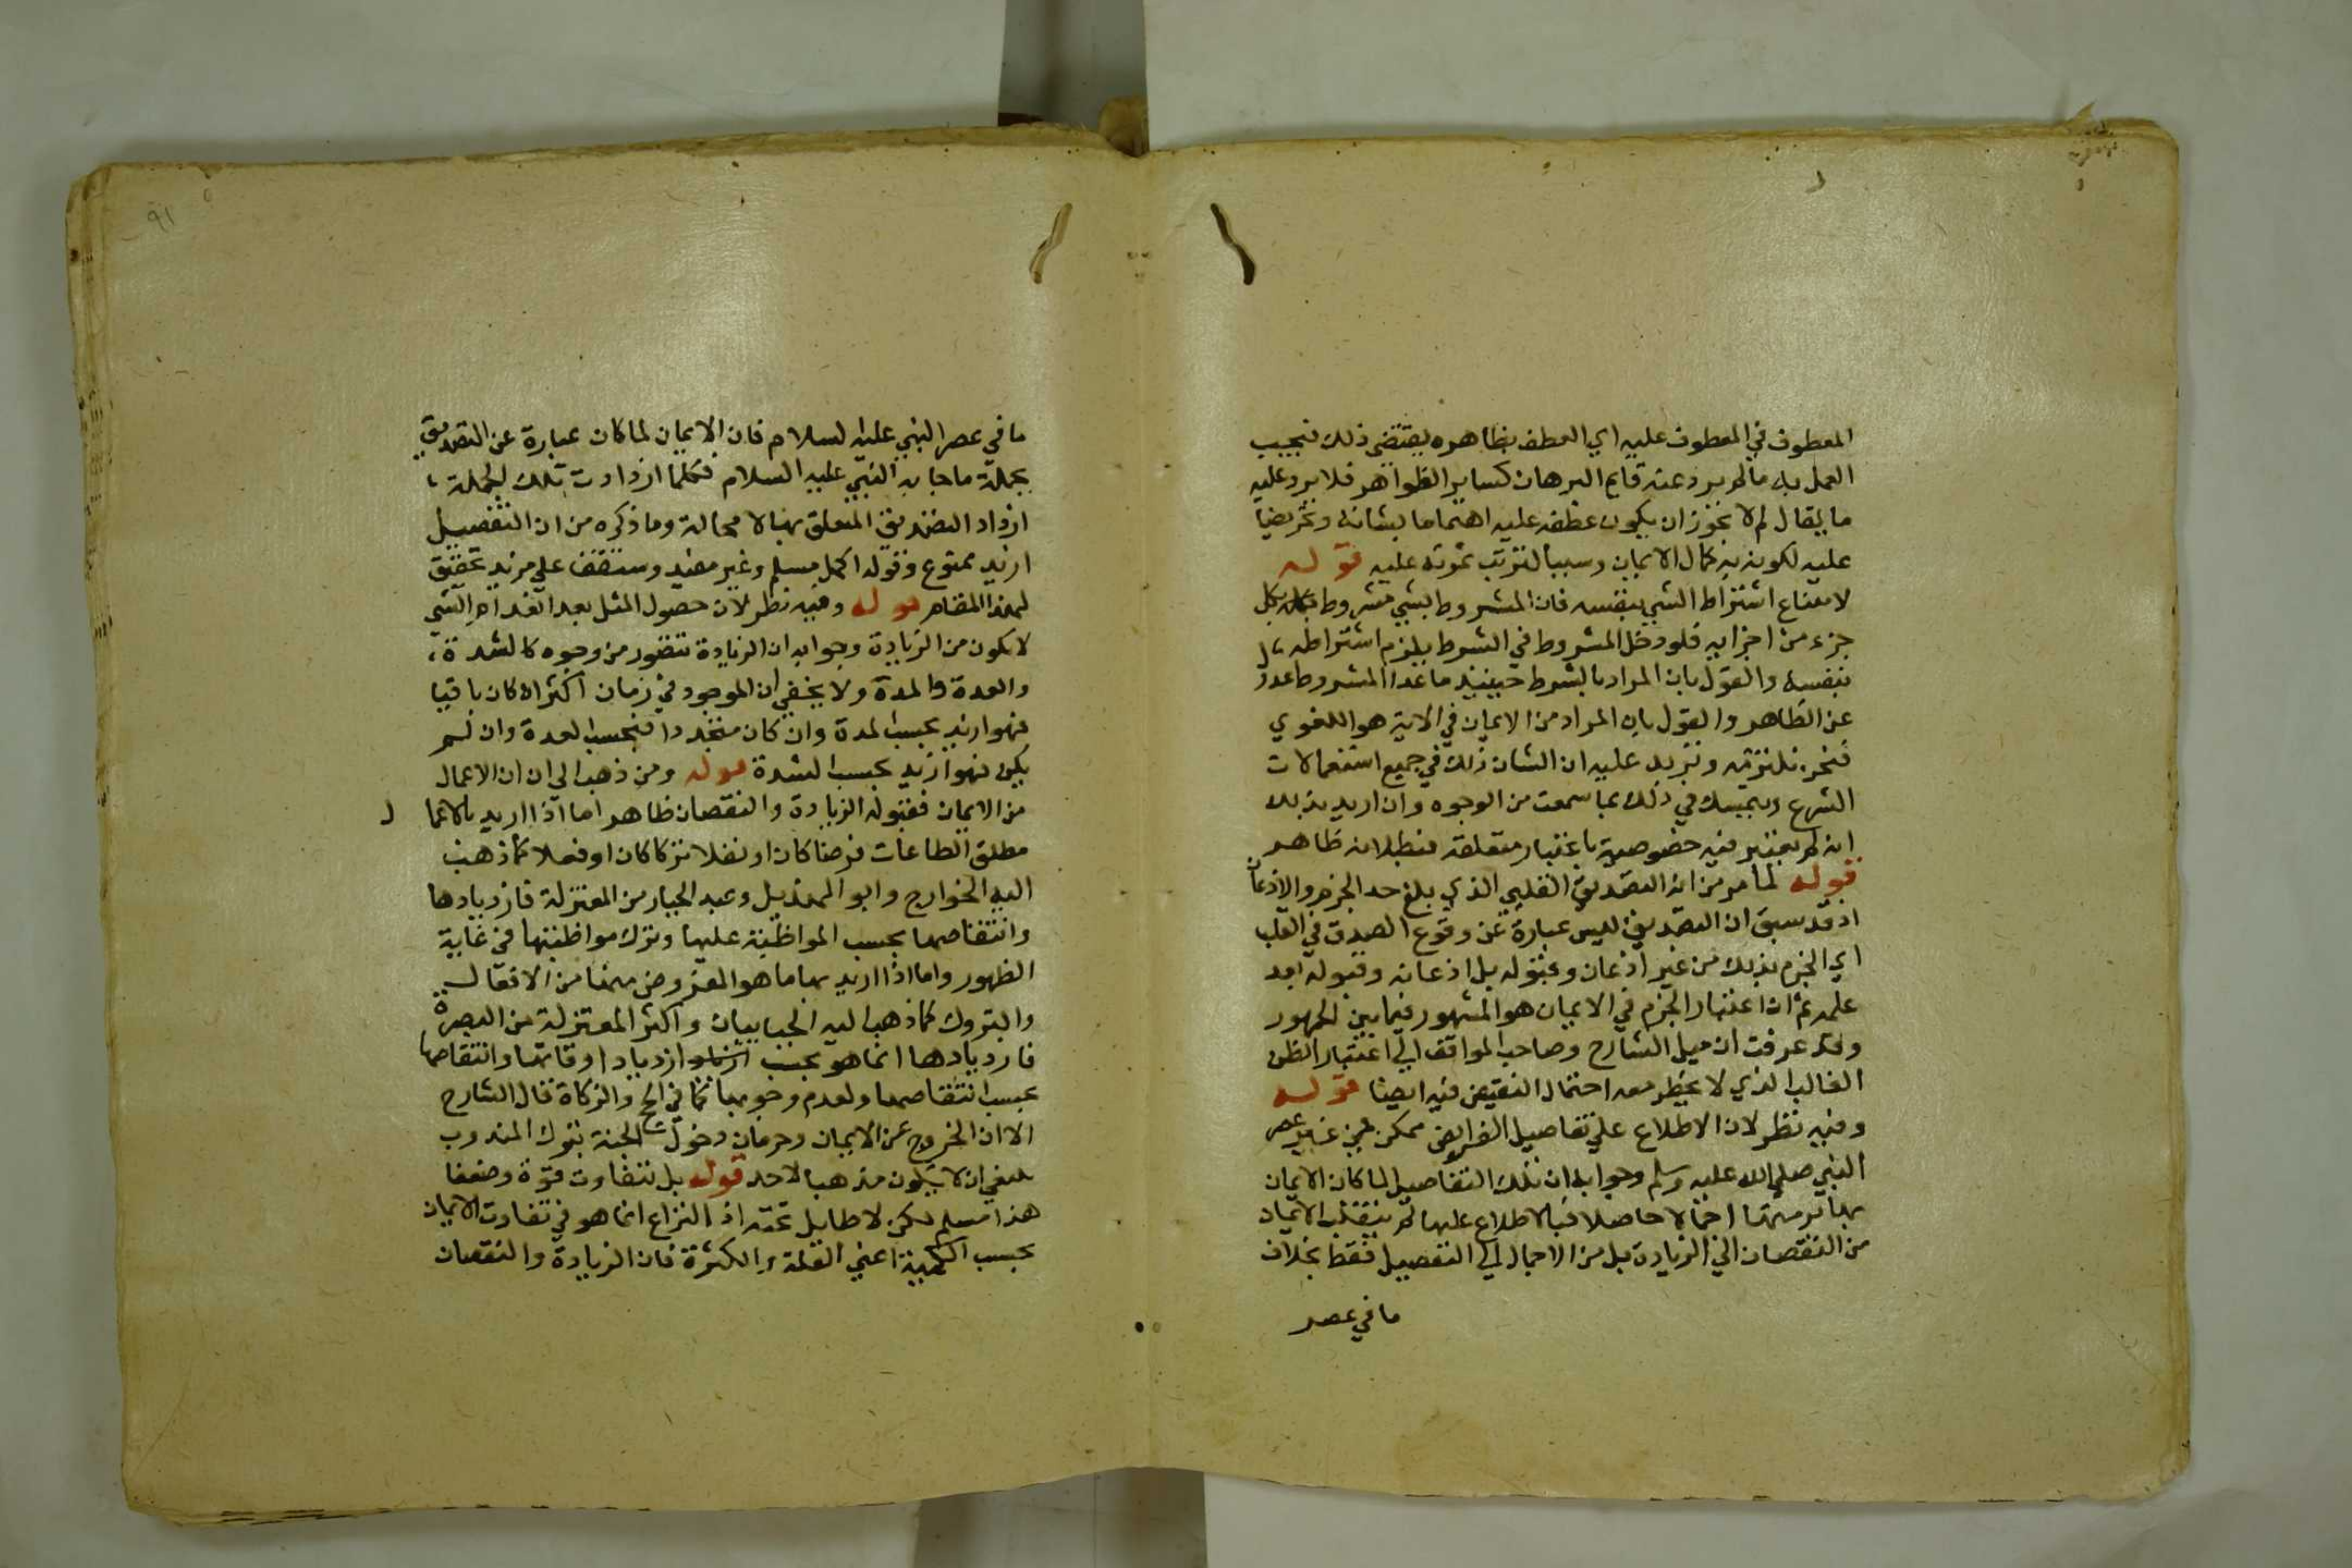 المعطوف في المعطوف عليه اي العطف بظاهره يقتضي ذلك فيجب
العمل به ما لم يرد عنه قايم البرهان كساير الظواهر فلا يرد عليه
ما يقال لم لا يجوز ان يكون عطفه عليه اهتماما بشانه وتحريضا
عليه لكونه به كمال الايمان وسببا لترتب ثمرته عليه قوله
لامتناع اشتراط الشي بنفسه فان المشروط بشي مشروط بكل
جزء من اجزايه فلو دخل المشروط في الشرط يلزم اشتراطه
بنفسه والقول بان المراد بالشرط حينيذ ما عدا المشروط عدول
عن الظاهر والقول بان المراد من الايمان في الاية هو اللغوي
فنحن نلتزمه ونزيد عليه ان الشان ذلك في جميع استعمالات
الشرع ويتمسك في ذلك بما سمعت من الوجوه وان اريد بذلك
انه لم يعتبر فيه خصوصية باعتبار متعلقه فبطلانه ظاهر
قوله لما مر من انه التصديق القلبي الذي بلغ حد الجزم والاذعان
اذ قد سبق ان التصديق ليس عبارة عن وقوع الصدق في القلب
اي الجزم بذلك من غير اذعان وقبوله بل اذعانه وقبوله بعد
علمه ثم ان اعتبار الجزم في الايمان هو المشهور فيما بين الجمهور
وقد عرفت ان ميل الشارح وصاحب المواقف الي اعتبار الظن
الغالب الذي لا يخطر معه احتمال النقيض فيه ايضا قوله
وفيه نظر لان الاطلاع علي تفاصيل الفرايض ممكن في غير عصر
النبي صلي الله عليه وسلم وجوابه ان تلك التفاصيل لما كان الايمان
بها برمتها اجمالا حاصلا فبالاطلاع عليها لم ينقلب الايمان
من النقصان الي الزيادة بل من الاجمال الي التفصيل فقط بخلاف
ما في عصر
٩١
ما في عصر النبي عليه السلام فان الايمان لما كان عبارة عن التصديق
بجملة ما جا به النبي عليه السلام فكلما ازدادت تلك الجملة
ازداد التصديق المتعلق بها لا محالة وما ذكره من ان التفصيل
ازيد ممنوع وقوله اكمل مسلم وغير مفيد وستقف علي مزيد تحقيق
لهذا المقام قوله وفيه نظر لان حصول المثل بعد انعدام الشي
لا يكون من الزيادة وجوابه ان الزيادة تتصور من وجوه كالشدة
والعدة والمدة ولا يخفي ان الموجود في زمان اكثر ان كان باقيا
فهو ازيد بحسب المدة وان كان متجددا فبحسب العدة وان لم
يكن فهو ازيد بحسب الشدة قوله ومن ذهب الي ان ان الاعمال
من الايمان فقبوله الزيادة والنقصان ظاهر اما اذا اريد بالاعمال
مطلق الطاعات فرضا كان او نفلا تركا كان او فعلا كما ذهب
اليه الخوارج وابو الهذيل وعبد الجبار من المعتزلة فازديادها
وانتقاصها بحسب المواظبة عليها وترك مواظبتها في غاية
الظهور واما اذا اريد بها ما هو المفروض منها من الافعال
والتروك كما ذهب اليه الجباييان واكثر المعتزلة من البصرة
فازديادها انما هو بحسب ازدياد اوقاتها وانتقاصها
بحسب انتقاصها ولعدم وجوبها كما في الحج والزكاة قال الشارح
الا ان الخروج عن الايمان وحرمان دخول الجنة بترك المندوب
ينبغي ان لا يكون مذهبا لاحد قوله بل تتفاوت قوة وضعفا
هذا مسلم لكن لا طايل تحته اذ النزاع انما هو في تفاوت الايمان
بحسب الكمية اعني القلة والكثرة فان الزيادة والنقصان